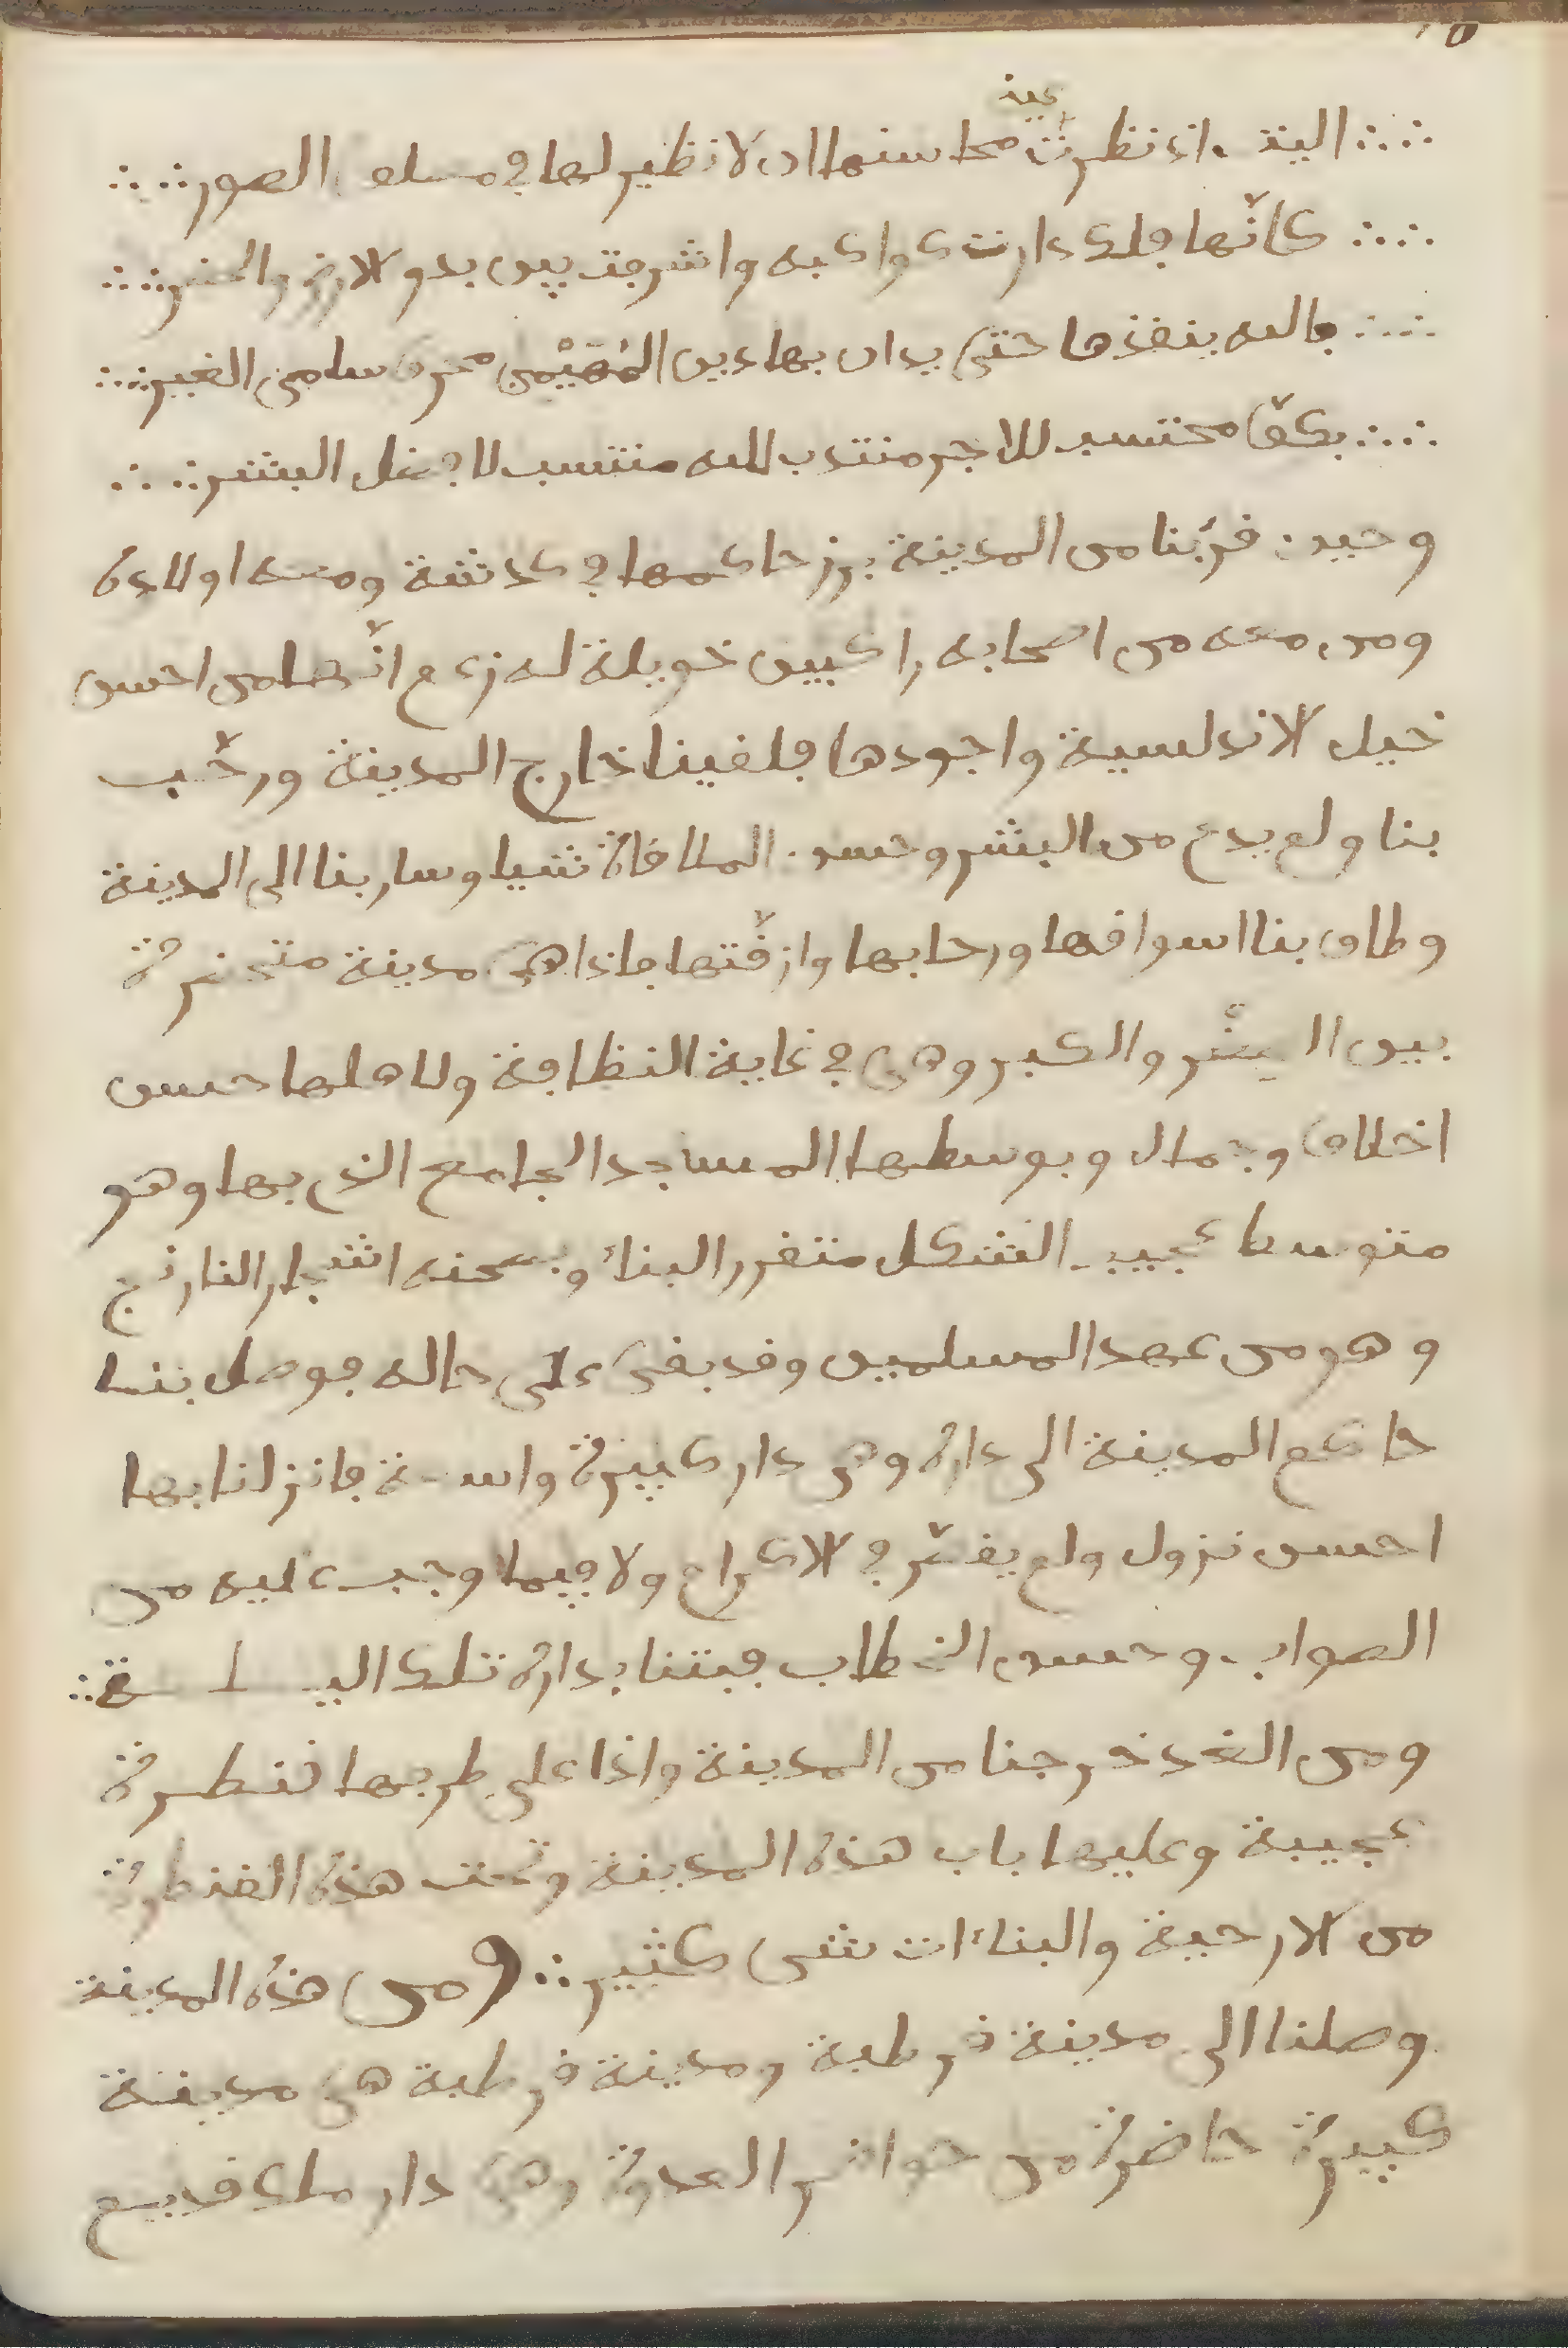 عينه
∴ اليت اذ نظرت محاسنها ان لا نظير لها في الصور ∴
∴ كانّها فلك دارت كواكبه واشرقت بين بدو الارض والحضر ∴
∴ فالله ينقذها حتى يدان بها دين المُهَيْمن سامى ∴
∴ بكفّ محتسب للاجر منتدب لله منتسب لا البشر ∴
وحين قرُبنا من المدينة برز حاكمها في كدشة ومعه اولاده
ومن معه من اصحابه راكبين خويلة له زعم انّها من احسن
خيل الاندلسية واجودها فلقينا خارج المدينة ورحّب
بنا ولم يدع من البشر وحسن الملاقاة شيا وسار بنا الى المدينة
وطاف بنا اسواقها ورحابها وازقّتها فاذا هي مدينة متحضرة
بين الصغر والكبر وهي في غاية النظافة ولاهلها حسن
اخلاق وجمال وبوسطها المساجد الجامع الذي بها وهو
متوسط عجيب الشكل متقرر البناء وبصحنه اشجار النارنج
وهو من عهد المسلمين وقد بقى على حاله فوصل بنا
حاكم المدينة الى داره وهي دار كبيرة واسعة فانزلنا بها
احسن نزول ولم يقصّر في الاكرام ولا فيما وجب عليه من
الصواب وحسن الخطاب فبتنا بداره تلك الليلة ∴
ومن الغد خرجنا من المدينة واذا على طرفها قنطرة
عجيبة وعليها باب هذه المدينة وتحت هذه القنطرة
من الارحية والبناءات شى كثير ∴ ومن هذه المدينة
وصلنا الى مدينة قرطبة ومدينة قرطبة هي مدينة
كبيرة حاضرة من حواضر العدوة وهي دار ملك قديم